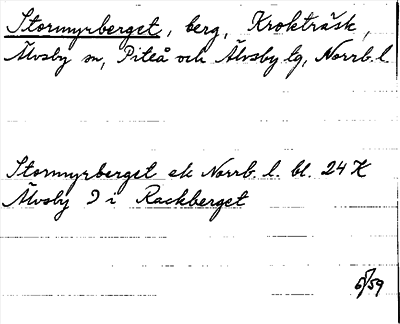 Stormyrberget, berg, Krokträsk,
Älvsby sn, Piteå och Älvsby tg, Norrb. l.
Stormyrberget ek Norrb. l. bl. 24 K
Älvsby 9 i Rackberget
5/59